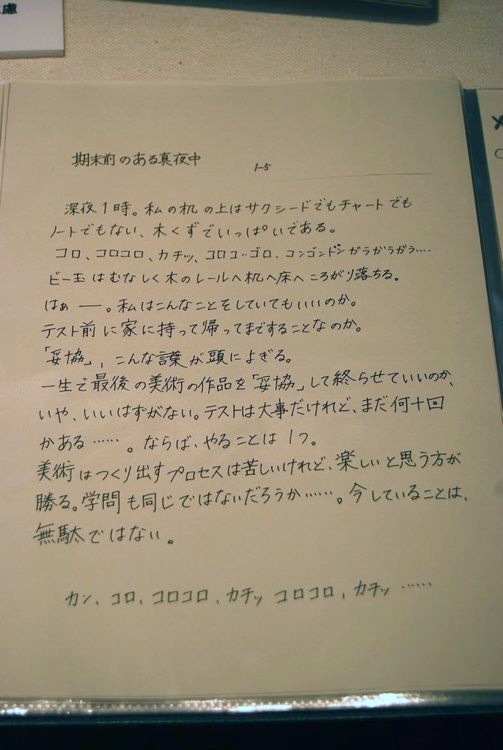 慮
期末前のある真夜中
1-5
深夜1時。私の机の上はサクシードでもチャートでも
ノートでもない、木くずでいっぱいである。
コロ、コロコロ、カチッ、コロコ‥ゴロ、コンゴンドンガラガラガラ‥‥
ビー玉はむなしく木のレールへ机へ床へころがり落ちる。
はぁ ー。私はこんなことをしていてもいいのか。
テスト前に家に持って帰ってまですることなのか。
「妥協」、こんな言葉が頭によぎる。
一生で最後の美術の作品を「妥協」して終らせていいのか、
いや、いいはずがない。テストは大事だけれど、まだ何十回
かある‥‥‥。ならば、やることは1つ。
美術はつくり出すプロセスは苦しいけれど、楽しいと思う方が
勝る。学問も同じではないだろうか‥‥‥。今していることは、
無駄ではない。
カン、コロ、コロコロ、カチッ コロコロ、カチッ ‥‥‥